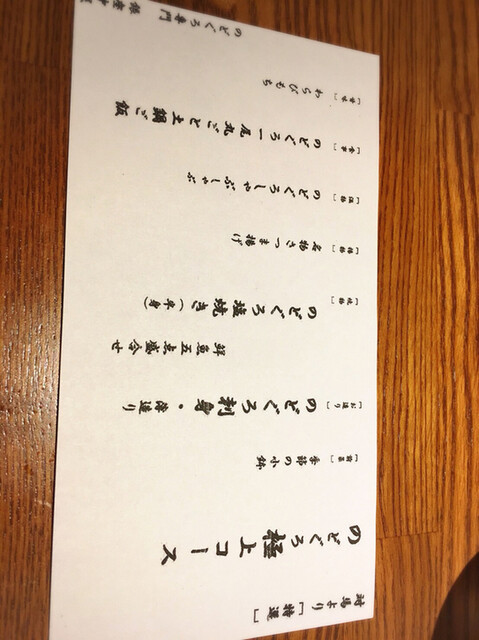 対馬より［特選］
のどぐろ極上コース
［前菜］季節の小鉢
［お造り］のどぐろ刺身・薄造り
鮮魚五点盛合せ
［焼物］のどぐろ塩焼き（半身）
［揚物］名物さつま揚げ
のどぐろしゃぶしゃぶ
［食事］のどぐろ一尾丸ごと土鍋ご飯
［甘味］わらびもち
のどぐろ専門 銀座中